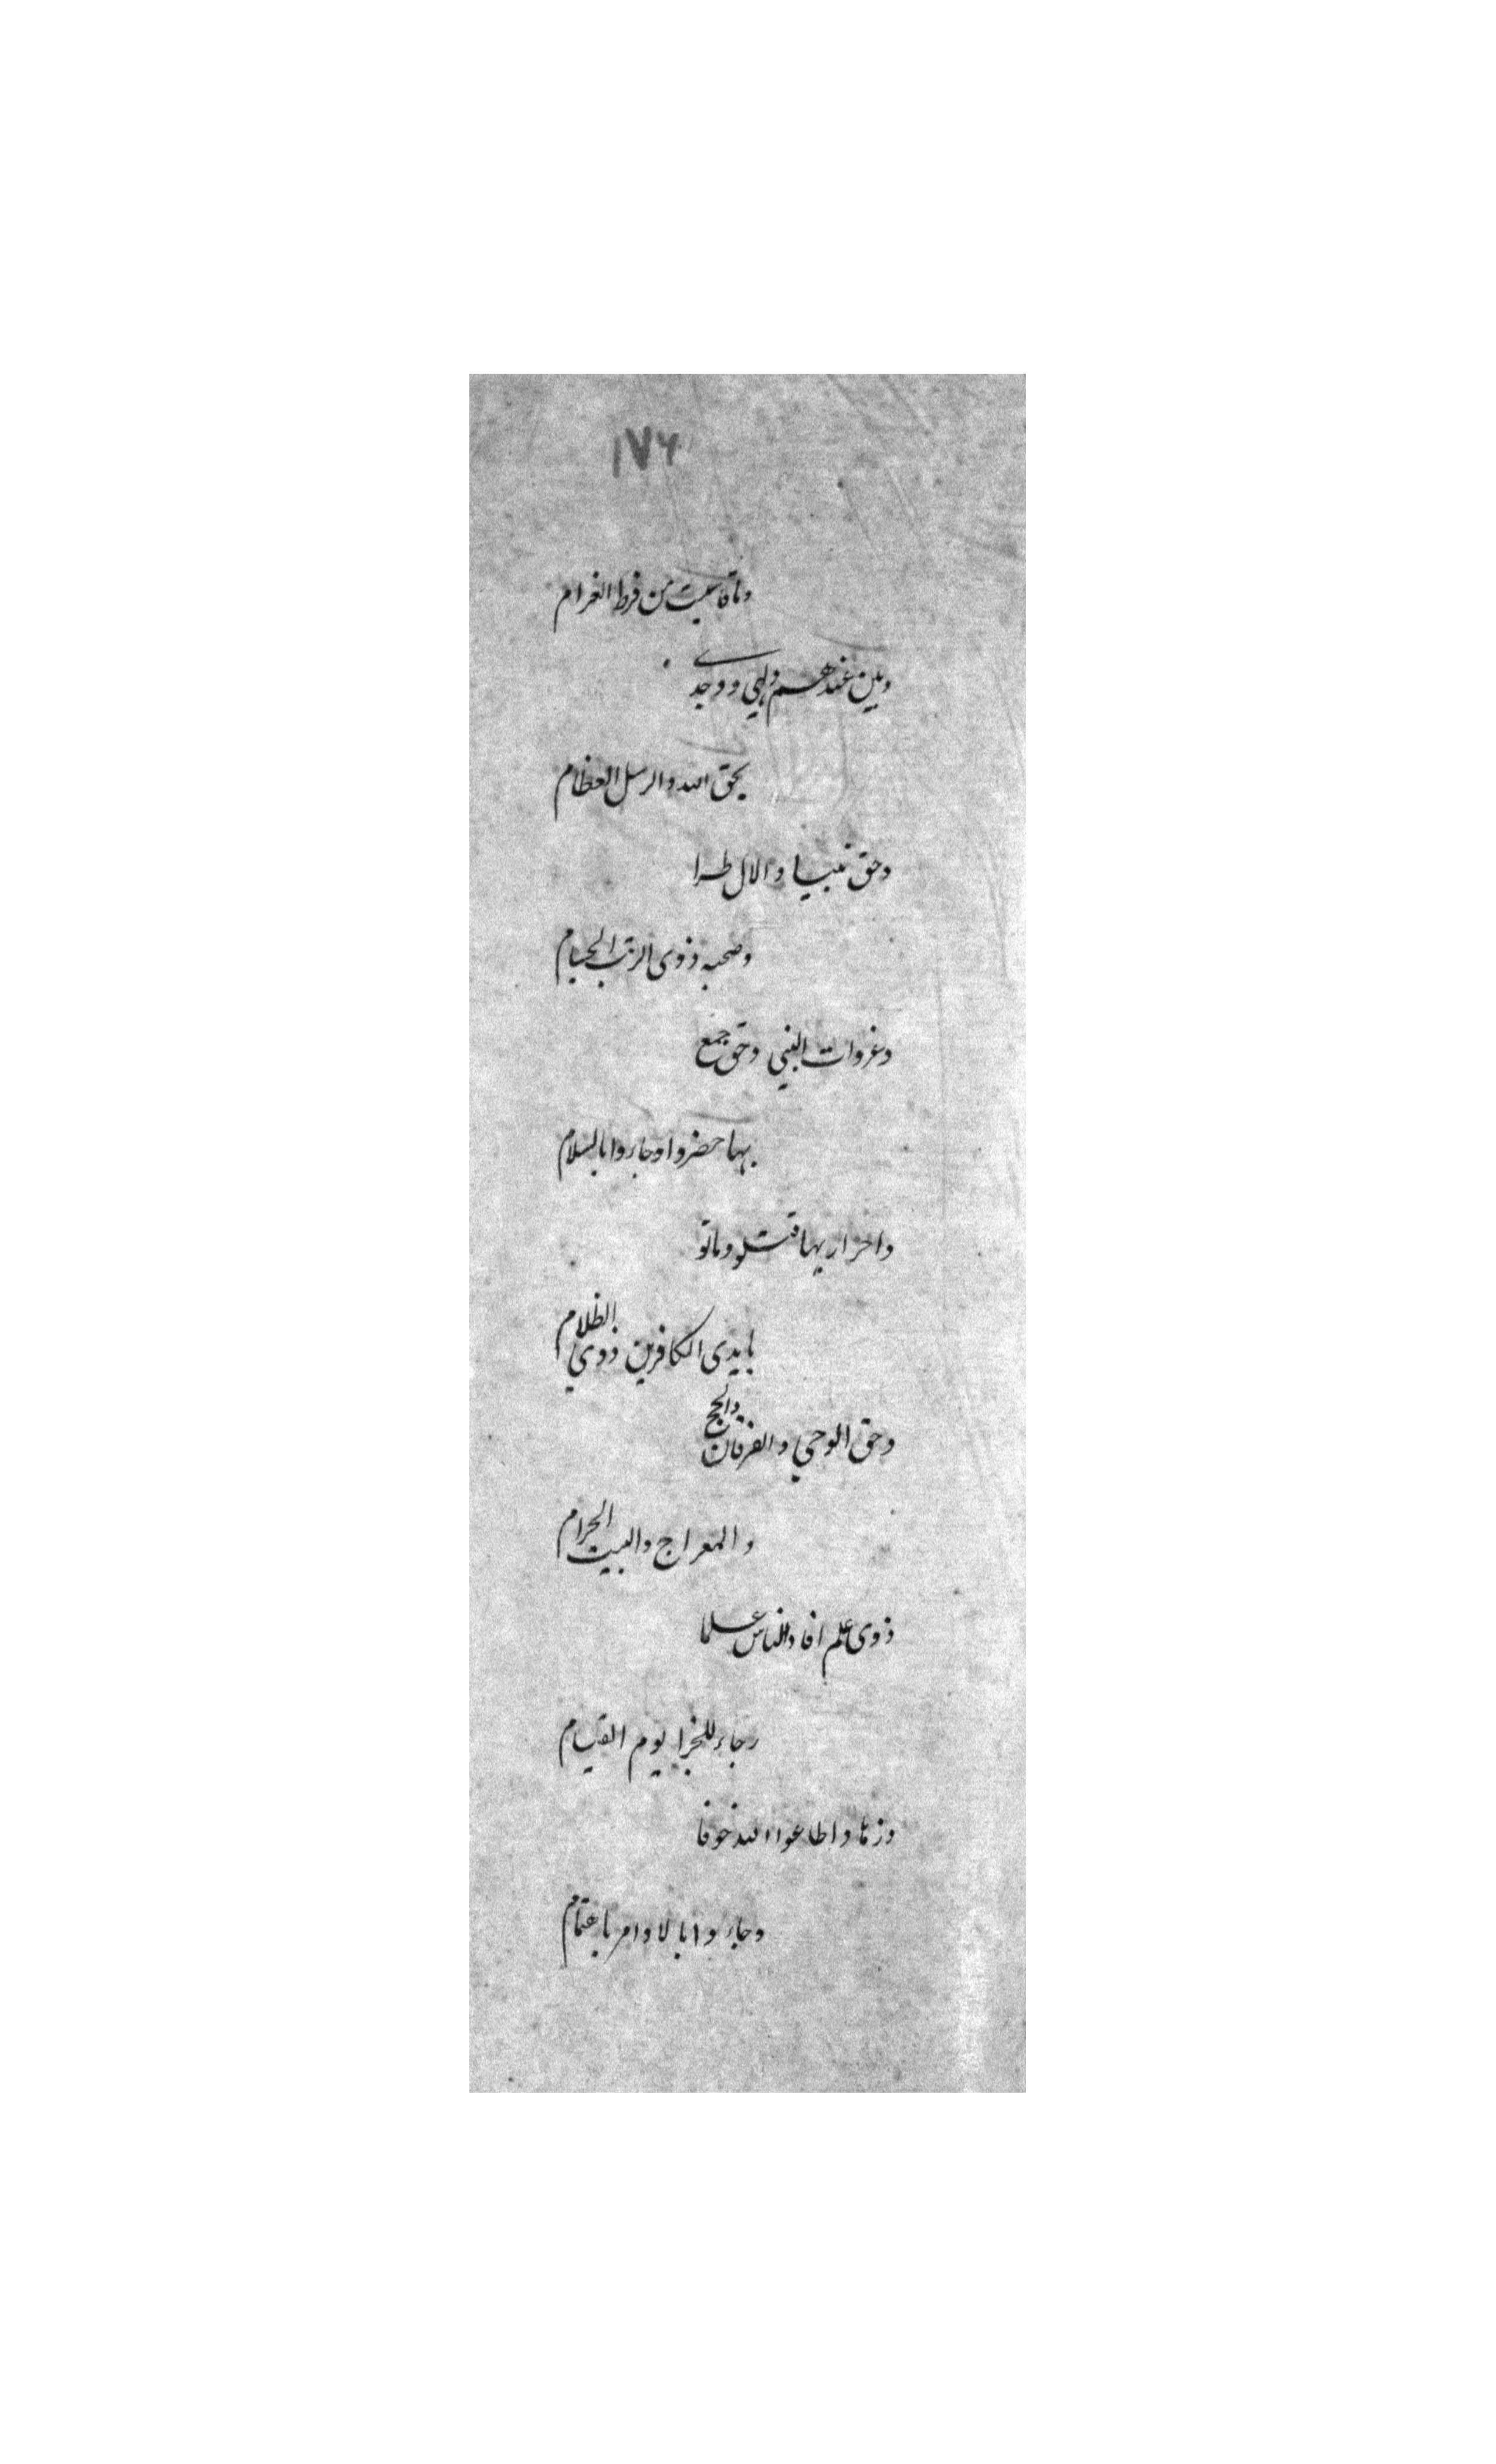 ١٧٦
وما قاسيت من فرط الغرام
وبين عندهم ولهي ووجدي
بحق الله والرسل العظام
وحق نبينا والال طرا
وصحبه ذوي الرتب الجسام
وغزوات النبي وحق جمع
بها حضروا وجاروا بالسلام
واحرار بها قتلو وماتو
بايدي الكافرين ذوي الظلام
وحق الوحي والفرقان والحج
والمعراج والبيت الحرام
ذوي علم افاد للناس علما
رجاء للجزا يوم القيام
وزهاد اطاعوا الله خوفا
وجاروا بالاوامر باهتمام